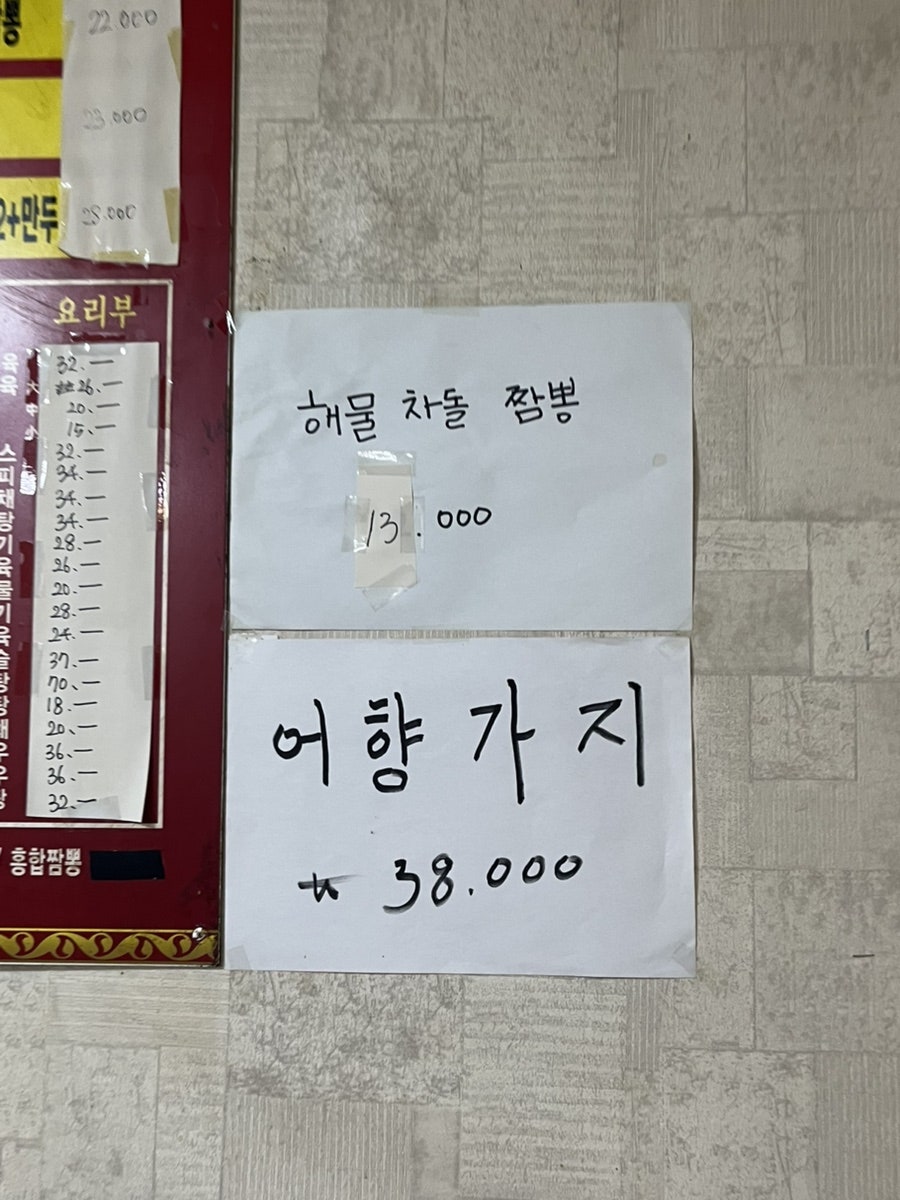 뽕 22.000
23.000
2+만두 28.000
요리부
육 32.—
육 大 26.—
中 20.—
小 15.—
스 32.—
피 34.—
채 34.—
탕 34.—
기 28.—
육 26.—
물 20.—
기 28.—
육 24.—
슬 37.—
탕 70.—
탕 18.—
채 20.—
우 36.—
우 36.—
탕 32.—
홍합짬뽕
해물 차돌 짬뽕
13.000
어향가지
₩ 38.000